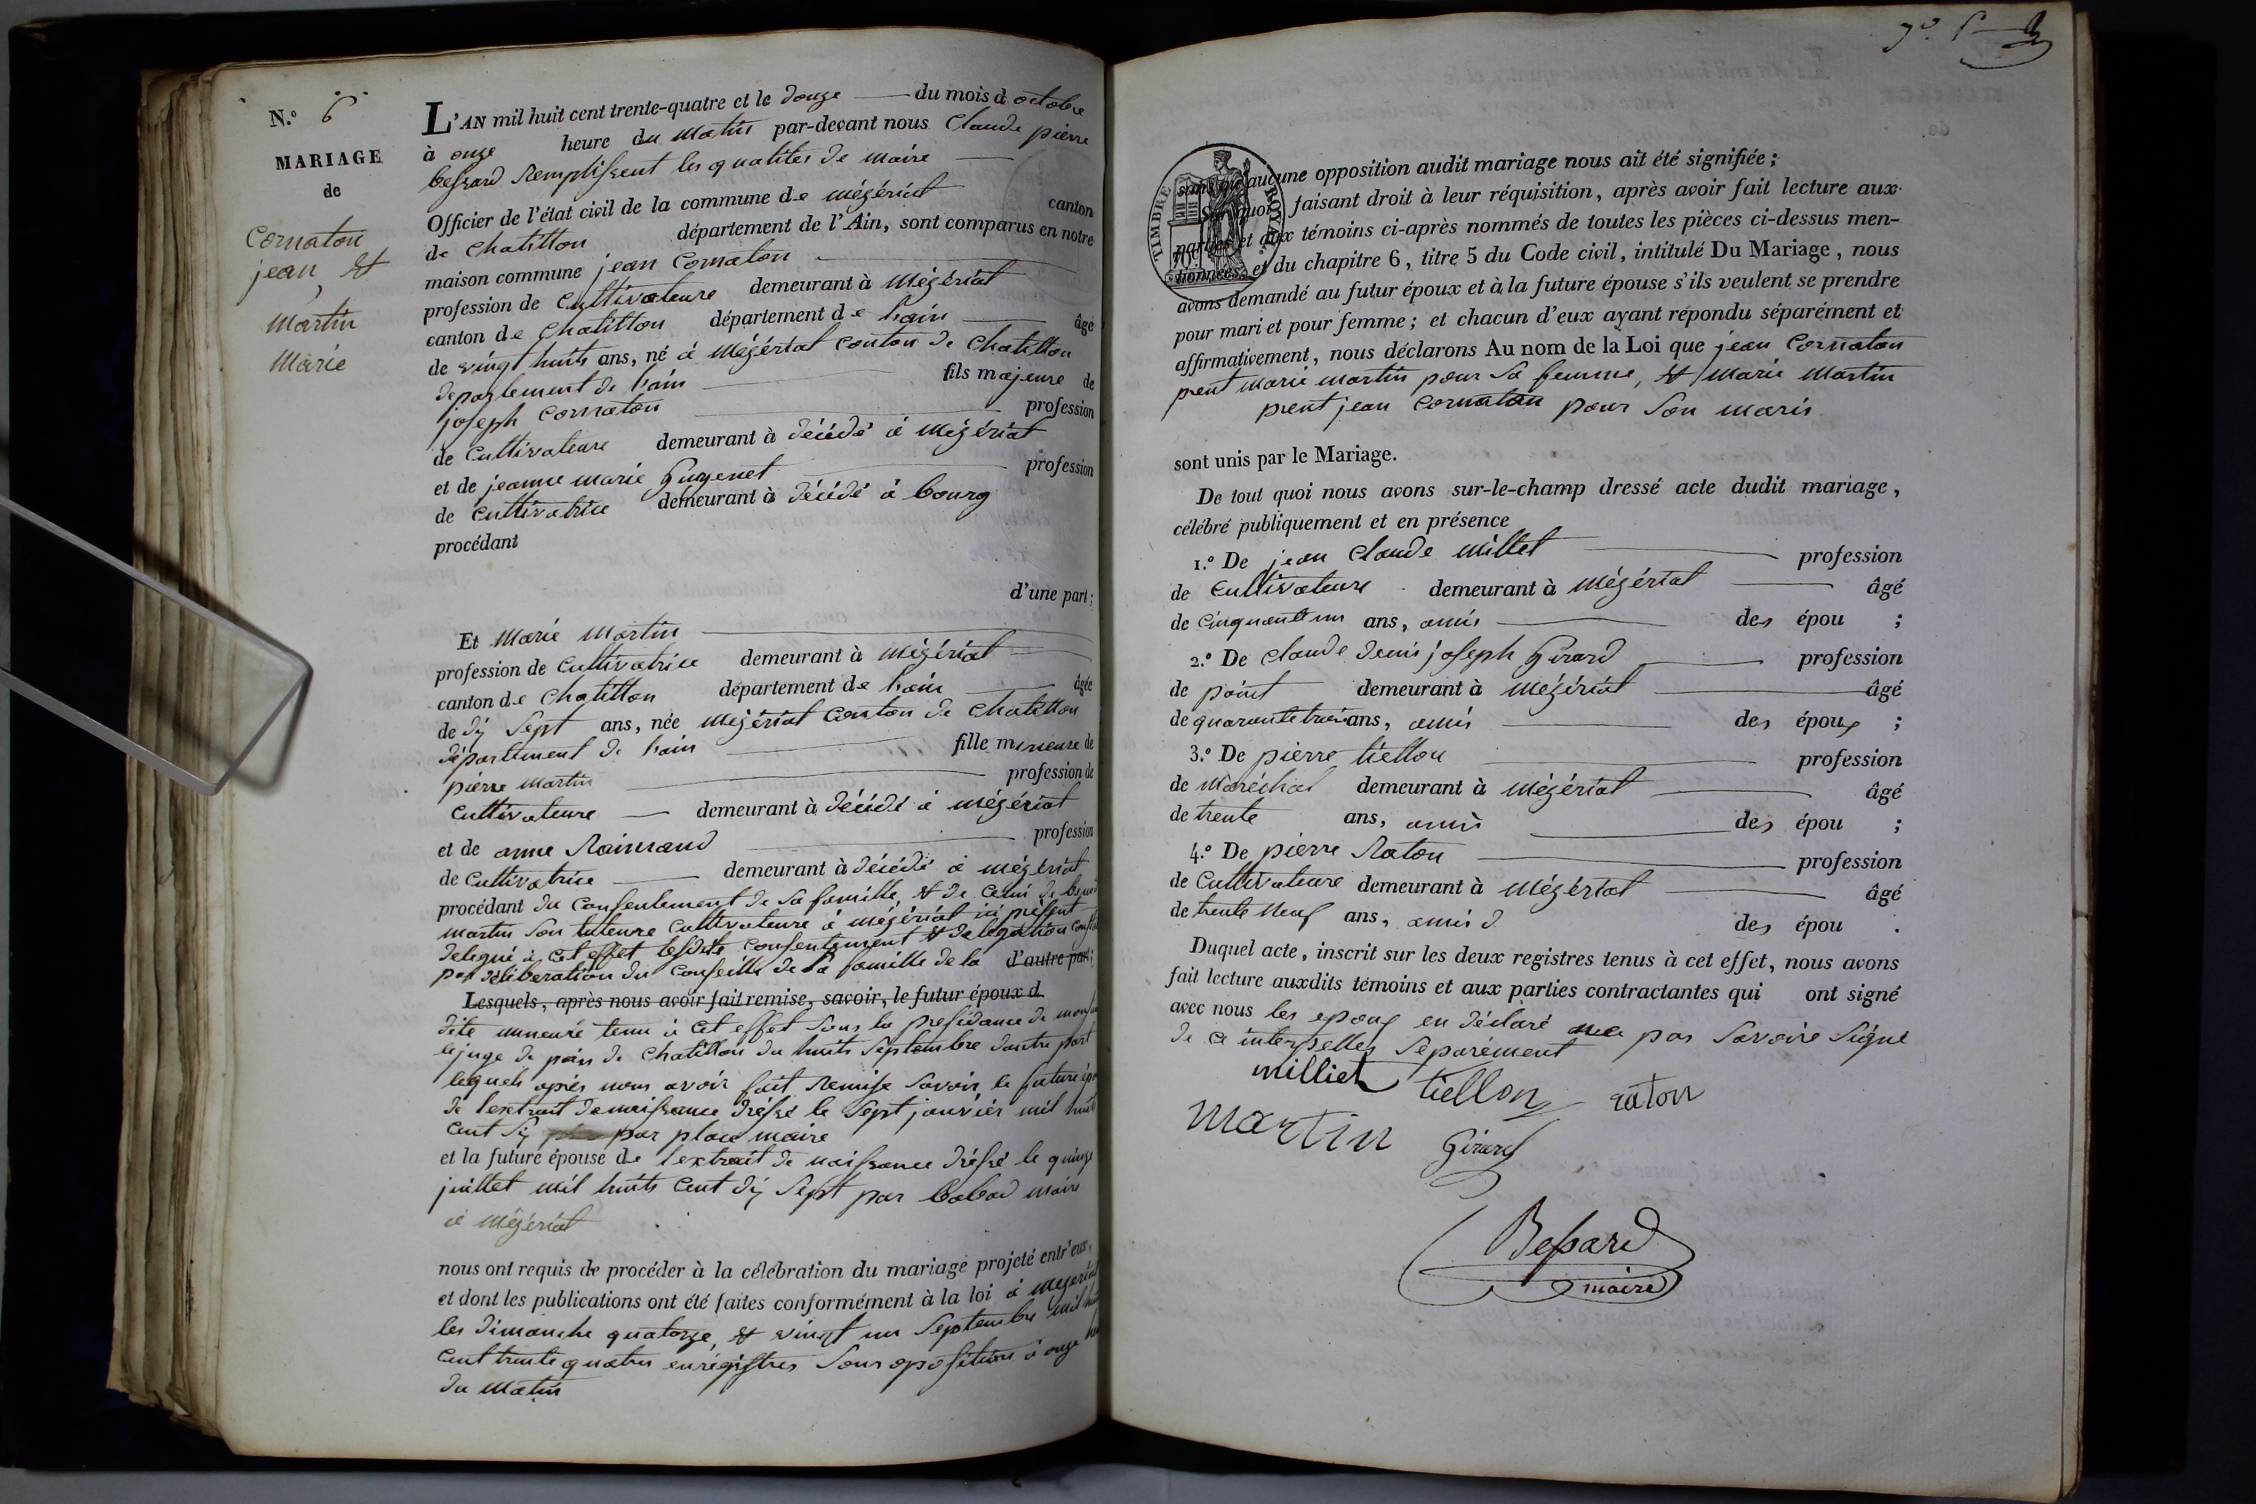 N.º 6
MARIAGE
de
Cornaton
jean, &
Martin
Marie
L'AN mil huit cent trente-quatre et le douze du mois d octobre
à onze heure du matin par-devant nous Claude pierre
bessard Remplissent les qualites de maire
Officier de l'état civil de la commune de mézériat canton
de chatillon département de l'Ain, sont comparus en notre
maison commune jean Cornaton
profession de Cultivateure demeurant à Mézériat
canton de chatillon département de lain âgé
de vingt huits ans, né à Mézériat Conton de Chatillon
département de lain fils majeure de
joseph Cornaton profession
de Cultivateure demeurant à décédé à Mézériat
et de jeanne marie Guyenet profession
de Cultivatrice demeurant à décédé à bourg
procédant
d'une part;
Et Marie Martin
profession de Cultivatrice demeurant à Mézériat
canton de Chatillon département de lain âgée
de dij Sept ans, née mézériat Conton de Chatillon
département de lain fille mineure de
pierre Martin profession de
Cultivateure demeurant à décédé à mézériat
et de anne Raimand profession
de Cultivatrice demeurant à décédé à mézériat
procédant du Consentement de sa famille, & de Celui de
martin son tuteure Cultivateure à mézériat ici présent
delegué à Cet effet lesdite Consentement & delegation
par deliberation du Conseille de la famille de la d'autre part;
Lesquels, après nous avoir fait remise, savoir, le futur époux d
dite mineure tenu à Cet effet Sous la presidance de
le juge de paix de Chatillon du huits Septembre dautre part
lequels après nous avoir fait Remise Savoir le future
de lextrait de naissance dréssé le Sept janvier mil huit
Cent Sij par place maire
et la future épouse de lextrait de naissance dréssé le quinze
juillet mil huits Cent dij Sept par babad maire
à Mézériat
nous ont requis de procéder à la célébration du mariage projeté entr'eux,
et dont les publications ont été faites conformément à la loi à mezeriat
les dimanche quatorze, & vingt un Septembre mil
Cent trente quatre enrégistres Sans oposition à onze
du matin
TIMBRE ROYAL
sans qu'aucune opposition audit mariage nous ait été signifiée;
Sur quoi, faisant droit à leur réquisition, après avoir fait lecture aux
parties et aux témoins ci-après nommés de toutes les pièces ci-dessus men-
tionnées, et du chapitre 6, titre 5 du Code civil, intitulé Du Mariage, nous
avons demandé au futur époux et à la future épouse s'ils veulent se prendre
pour mari et pour femme; et chacun d'eux ayant répondu séparément et
affirmativement, nous déclarons Au nom de la Loi que jean Cornaton
prent marie martin pour sa femme, & Marie Martin
prent jean Cornaton pour son maris
sont unis par le Mariage.
De tout quoi nous avons sur-le-champ dressé acte dudit mariage,
célébré publiquement et en présence
1.º De jean Claude Millet profession
de Cultivateure demeurant à Mézériat âgé
de Cinquantte un ans, amis des épou ;
2.º De Claude denis joseph Girard profession
de point demeurant à Mézériat âgé
de quarante trois ans, amis des époux ;
3.º De pierre tiellon profession
de Maréchal demeurant à Mézériat âgé
de trente ans, amis des épou ;
4.º De pierre Raton profession
de Cultivateure demeurant à Mézériat âgé
de trente Neuf ans, amis d des épou .
Duquel acte, inscrit sur les deux registres tenus à cet effet, nous avons
fait lecture auxdits témoins et aux parties contractantes qui ont signé
avec nous les epoux en déclaré pas Savoire Signé
de Ce interpelles Séparément
milliet tiellon raton
martin Girard
Bessard
maire